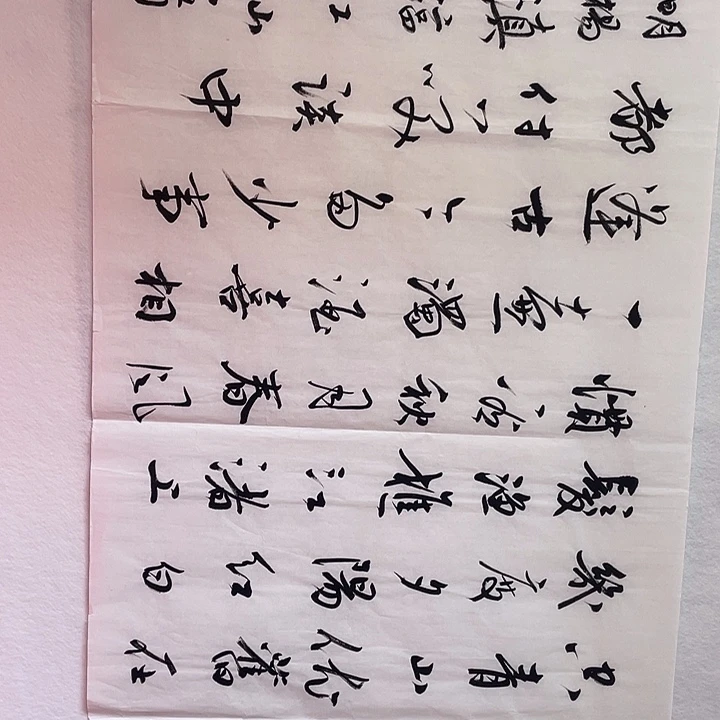 空青山依舊在
幾度夕陽紅白
髮漁樵江渚上
慣看秋月春風
一壺濁酒喜相
逢古今多少事
都付笑談中
明楊慎臨江仙